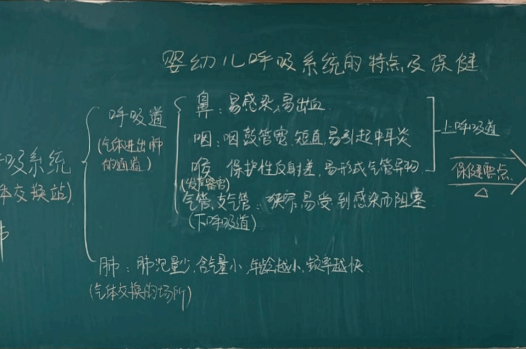 婴幼儿呼吸系统的特点及保健
呼吸道
(气体进出肺
的通道)
鼻:易感染,易出血
咽:咽鼓管宽、短直,易引起中耳炎
喉 保护性反射差,易形成气管异物
(发声器官)
气管、支气管: 狭窄易受到感染而阻塞
(下呼吸道)
上呼吸道
保健要点
△
吸系统
体交换站)
肺
肺:肺泡量少,含气量小,年龄越小,频率越快
(气体交换的场所)